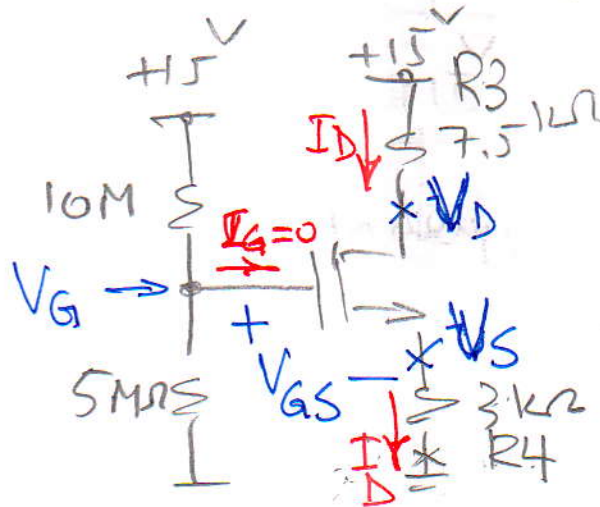 +15V
+15V
R3
7.5kΩ
ID
10M
IG=0
VD
VG
+
VGS
−
VS
5MΩ
3kΩ
R4
ID